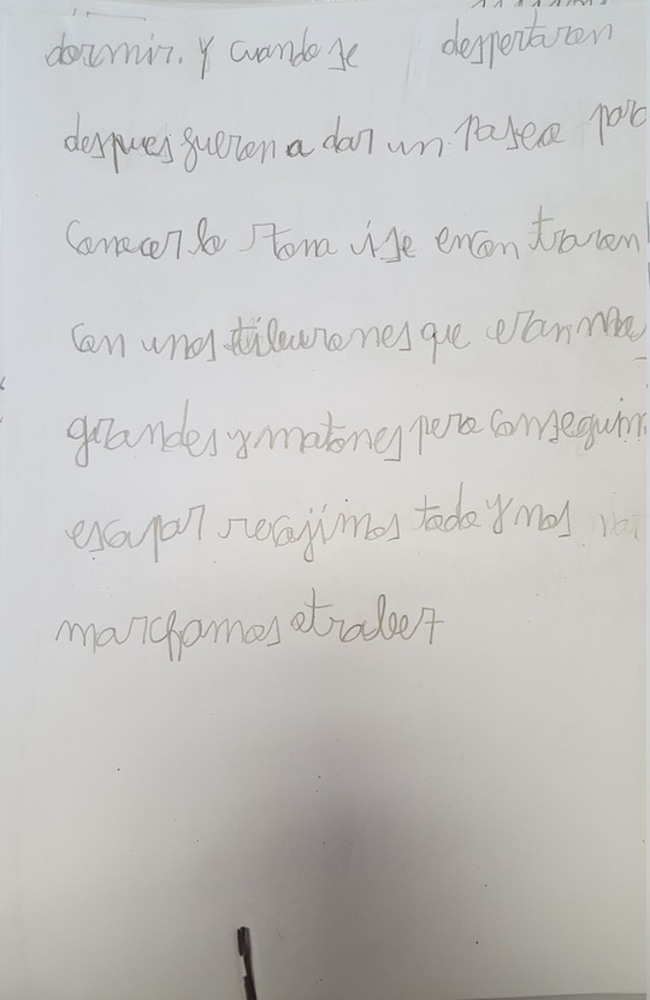 dormir. y cuando se despertaron
despues fueron a dar un paseo para
conocer la stona i se encontraron
con unos tiburones que eran
grandes y matones pero
escapar recojimos todo y nos
marchamos otrabez